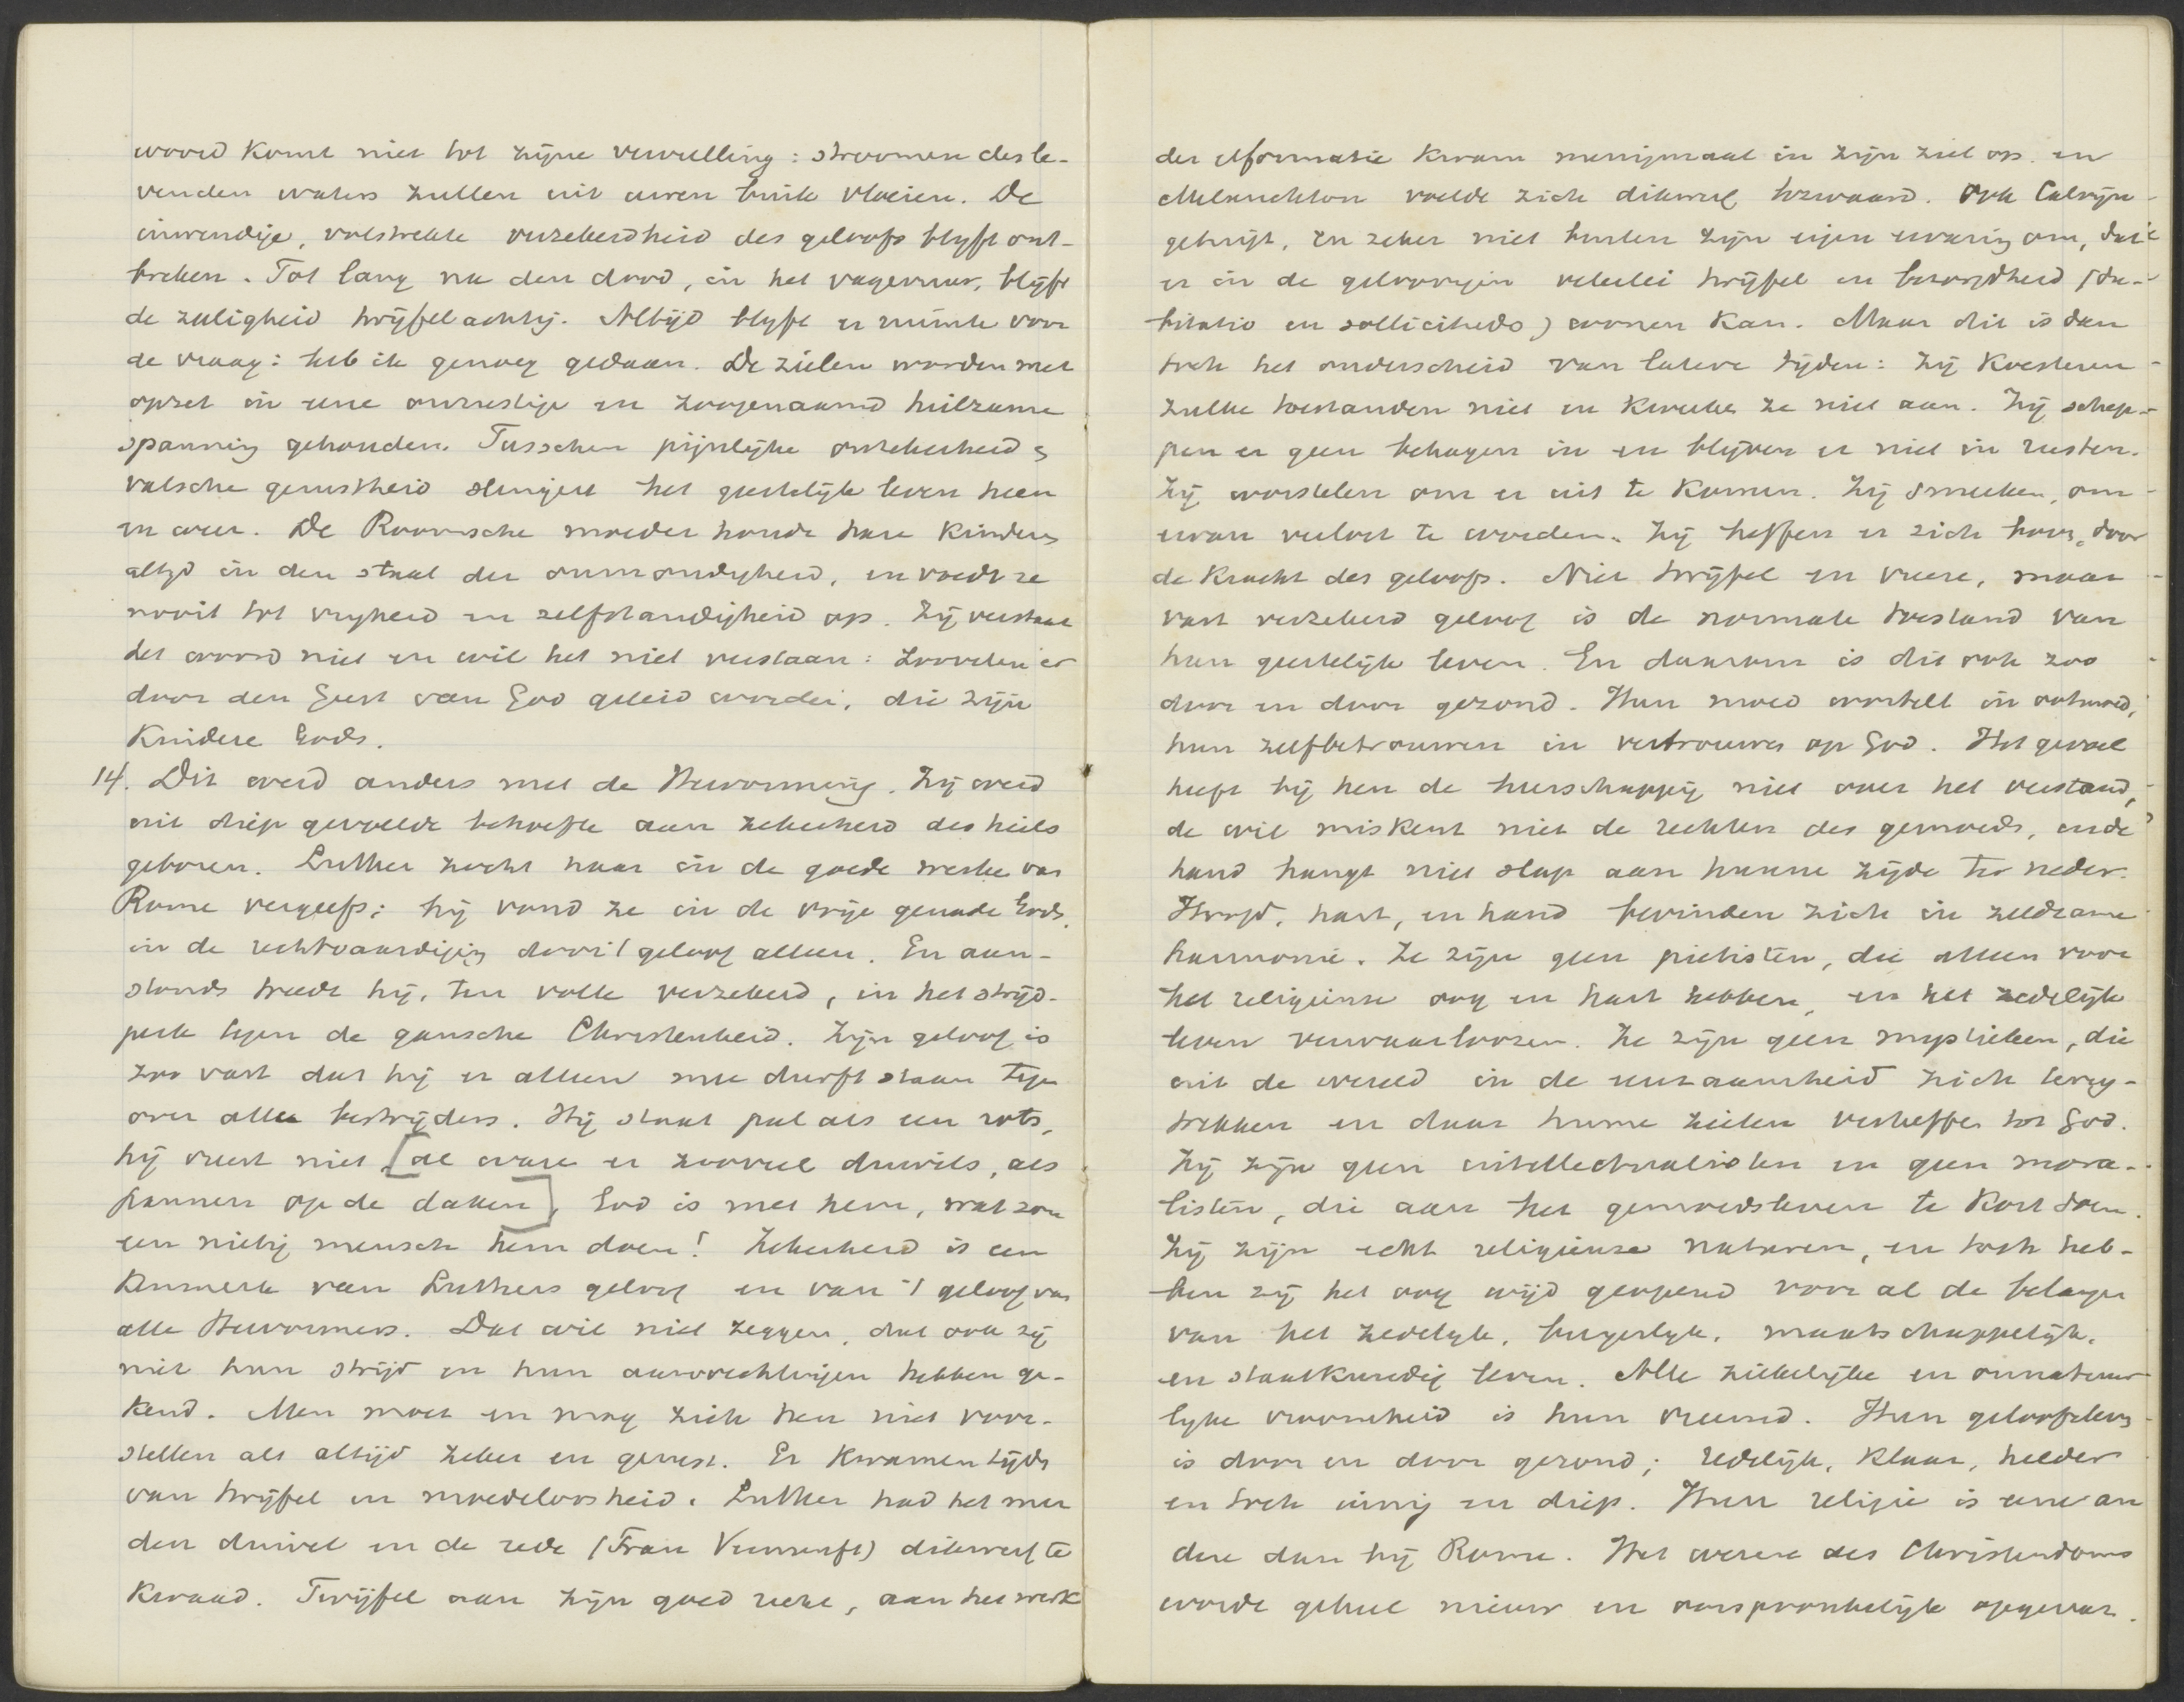 woord komt niet tot zijne vervulling: stroomen des le-
venden waters zullen uit uwen buik vloeien. De
inwendige, volstrekte verzekerdheid des geloofs blyft ont-
breken. Tot lang na den dood, in het vagevuur, blijft
de zaligheid twijfelachtig. Altijd blyft er ruimte voor
de vraag: heb ik genoeg gedaan. De zielen worden met
opzet in eene onrustige en zoogenaamd heilzame
spanning gehouden. Tusschen pijnlijke onzekerheid &
valsche gerustheid slingert het geestelijk leven heen
en weer. De Roomsche moeder houdt hare kinderen
altyd in den staat der onmondigheid, en voedt ze
nooit tot vryheid en zelfstandigheid op. Zij verstaat
het woord niet en wil het niet verstaan: zoovelen er
door den Geest van God geleid worden, die zijn
kinderen Gods.
14. Dit werd anders met de Hervorming. Zij werd
uit diep gevoelde behoefte aan zekerheid des heils
geboren. Luther zocht haar in de goede werken van
Rome vergeefs; hij vond ze in de vrije genade Gods,
in de rechtvaardiging door 't geloof alleen. En aan-
stonds treedt hij, ten volle verzekerd, in het strijd-
perk tegen de gansche Christenheid. Zijn geloof is
zoo vast dat hij er alleen mee durft staan tegen
over alle bestrijders. Hij staat pal als een rots,
hij vreest niet [al waren er zooveel duivels, als
pannen op de daken], God is met hem, wat zou
een nietig mensch hem doen! Zekerheid is een
kenmerk van Luthers geloof en van 't geloof van
alle Hervormers. Dat wil niet zeggen, dat ook zij
niet hun strijd en hun aanvechtingen hebben ge-
kend. Men moet en mag zich hen niet voor-
stellen als altijd zeker en gerust. Er kwamen tijden
van twijfel en moedeloosheid. Luther had het met
den duivel en de rede (Frau Vernunft) dikwerf te
kwaad. Twijfel aan zijn goed recht, aan het werk
der Reformatie kwam menigmaal in zijn ziel op. en
Melanchton voelde zich dikwerf bezwaard. Ook Calvijn
getuigt, en zeker niet buiten zijn eigen ervaring om, dat
er in de geloovigen velerlei twijfel en bezorgdheid (du-
bitatio en sollicitudo) wonen kan. Maar dit is dan
toch het onderscheid van latere tijden: zij koesteren
zulke toestanden niet en kweeken ze niet aan. Zij schep-
pen er geen behagen in en blijven er niet in rusten.
Zij worstelen om er uit te komen. Zij smeeken, om
ervan verlost te worden. Zij heffen er zich boven, door
de kracht des geloofs. Niet twijfel en vreeze, maar
vast verzekerd geloof is de normale toestand van
hun geestelijk leven. En daarom is dit ook zoo
door en door gezond. Hun moed wortelt in ootmoed,
hun zelfbetrouwen in vertrouwen op God. Het gevoel
heeft bij hen de heerschappij niet over het verstand,
de wil miskent niet de rechten des gemoeds, en de
hand hangt niet slap aan hunne zijde ter neder.
Hoofd, hart, en hand bevinden zich in zeldzame
harmonie. Ze zijn geen piëtisten, die alleen voor
het religieuse oog en hart hebben, en het zedelijk
leven verwaarloozen. Ze zijn geen mystieken, die
uit de wereld in de eenzaamheid zich terug-
trekken en daar hunne zielen verheffen tot God.
Zij zijn geen intellectualisten en geen mora-
listen, die aan het gemoedsleven te kort doen.
Zij zijn echt religieuze naturen, en toch heb-
ben zij het oog wijd geopend voor al de belangen
van het zedelyk, burgerlyk, maatschappelijk,
en staatkundig leven. Alle ziekelijke en onnatuur-
lyke vroomheid is hun vreemd. Hun geloofsleven
is door en door gezond; redelijk, klaar, helder
en toch innig en diep. Hun religie is eene an
dere dan bij Rome. Het wezen des Christendoms
wordt geheel nieuw en oorspronkelijk opgevat.